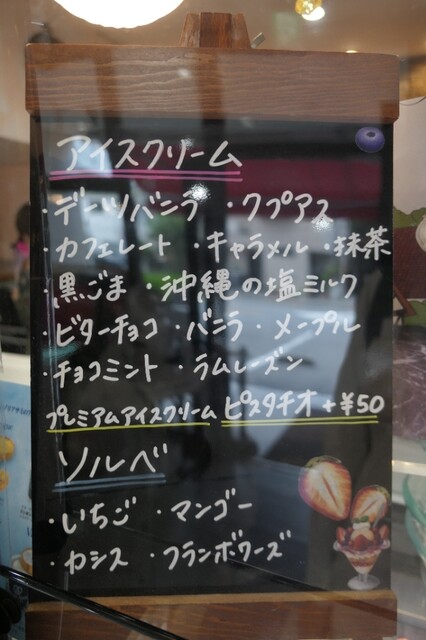 アイスクリーム
・デーツバニラ ・クプアス
・カフェレート ・キャラメル ・抹茶
・黒ごま ・沖縄の塩ミルク
・ビターチョコ ・バニラ ・メープル
・チョコミント ・ラムレーズン
プレミアムアイスクリーム ピスタチオ+¥50
ソルベ
・いちご ・マンゴー
・カシス ・フランボワーズ